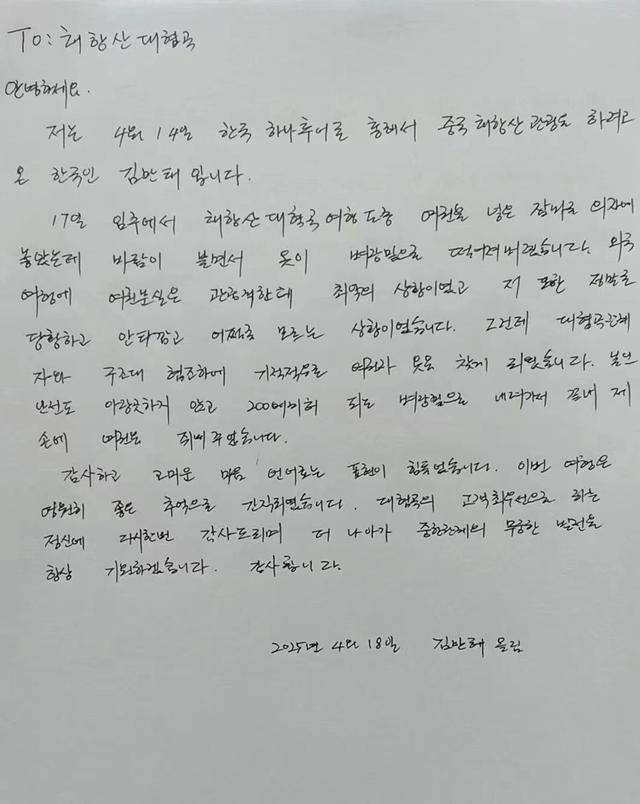 To: 태항산대협곡
안녕하세요.
저는 4월 14일 한국 하나투어를 통해서 중국 태항산 관광을 하려고
온 한국인 김만태입니다.
17일 임주에서 태항산대협곡 여행 도중 여권을 넣은 잠바를 의자에
놓았는데 바람이 불면서 옷이 벼랑밑으로 떨어져버렸습니다. 외국
여행에 여권분실은 관광객한테 최악의 상황이였고 저 또한 정말로
당황하고 안타깝고 어쩔줄 모르는 상황이였습니다. 그런데 대협곡관계
자와 구조대 협조하에 기적적으로 여권과 옷을 찾게 되였습니다. 본인
안전도 아랑곳하지 않고 200메터의 되는 벼랑밑으로 내려가서 끝내 제
손에 여권을 쥐여주었습니다.
감사하고 고마운 마음 언어로는 표현이 힘들었습니다. 이번 여행은
영원히 좋은 추억으로 간직되였습니다. 대협곡의 고객최우선으로 하는
정신에 다시한번 감사드리며 더 나아가 중한관계의 무궁한 발전을
항상 기원하겠습니다. 감사합니다.
2025년 4월 18일 김만태 올림